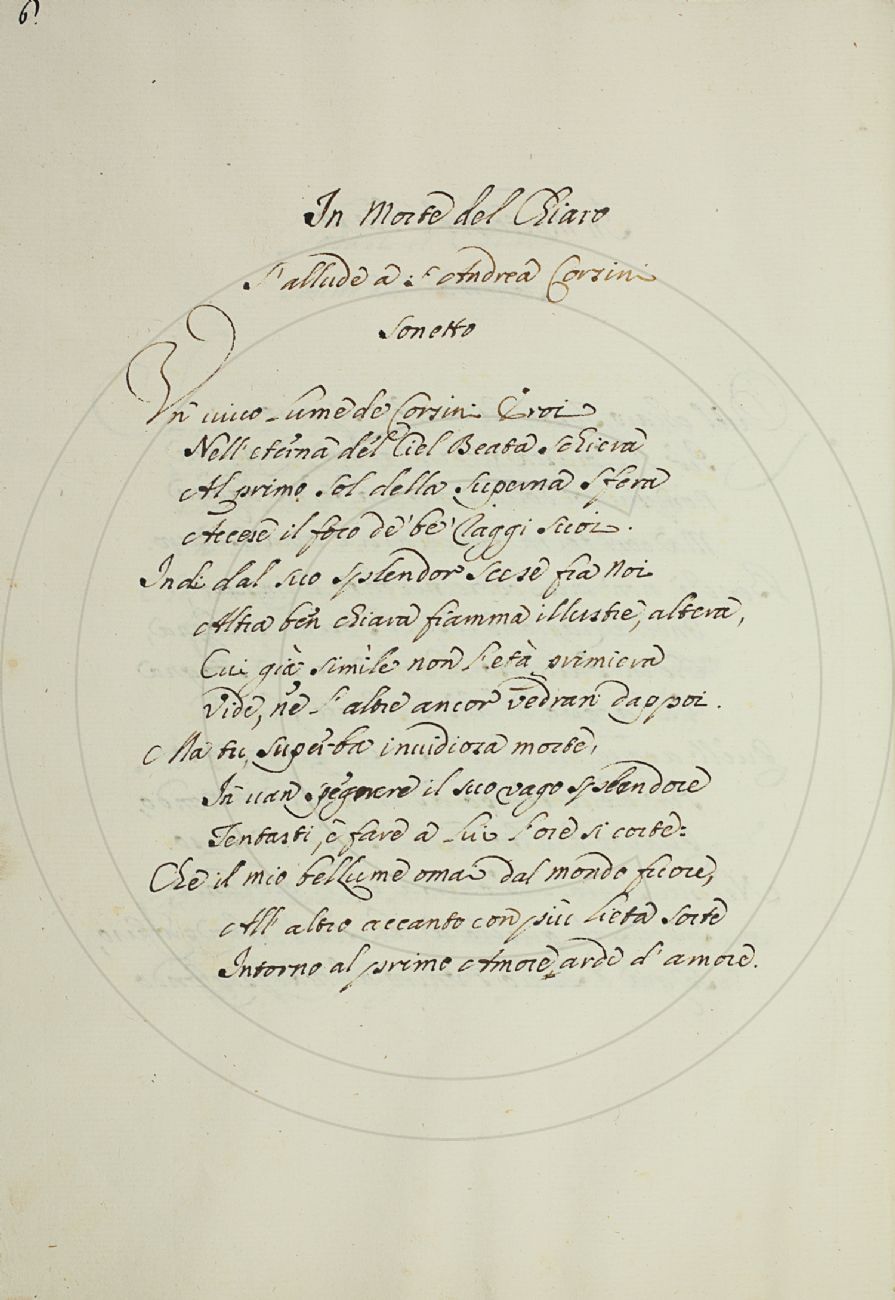 6.
In Morte del Chiaro
S'allude a S. Andrea Corsini
Sonetto
Un vivo lume de Corsini Eroi
Nell'eterna del Ciel Beata schiera
Al primo Sol della superna sfera
Accese il foco de' be' raggi suoi.
Indi dal suo splendor scese fra noi
Altra ben chiara fiamma illustre, altera,
Cui già simile non l'età primiera
Vide, nè l'altre ancor vedran dappoi.
Ma tu, superba invidiosa morte,
In van spegnere il suo vago splendore
Tentasti, e fare a lui l'ore sì corte:
Che il mio bel lume omai dal mondo fuore,
All'altro accanto con più lieta sorte
Intorno al primo Amore, arde d'amore.